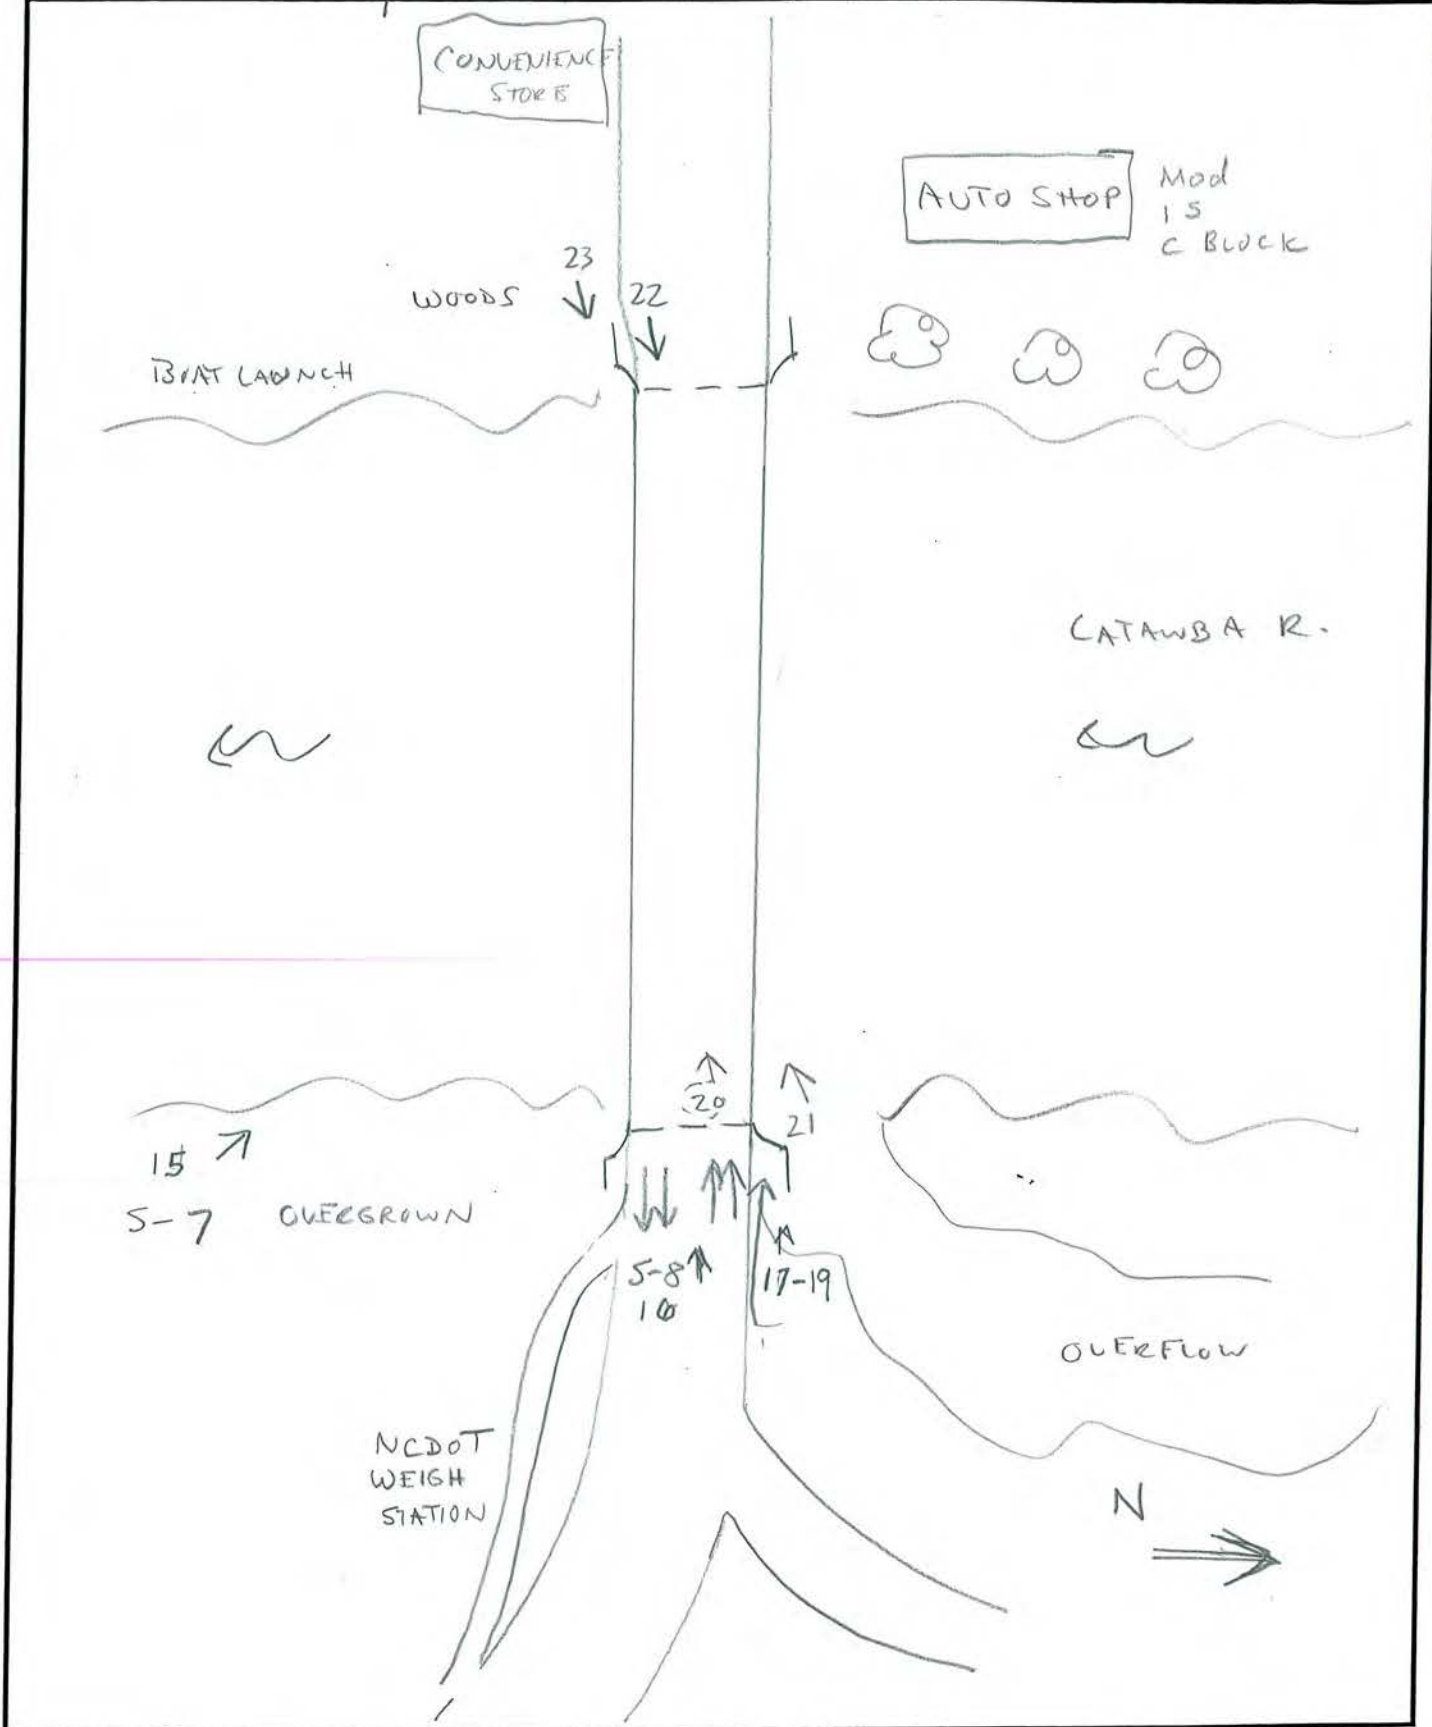 CONVENIENCE
STORE
AUTO SHOP
Mod
1 S
C BLOCK
23
WOODS
22
BOAT LAUNCH
CATAWBA R.
20
21
15
5-7 OVERGROWN
5-8
17-19
OVERFLOW
NCDOT
WEIGH
STATION
N